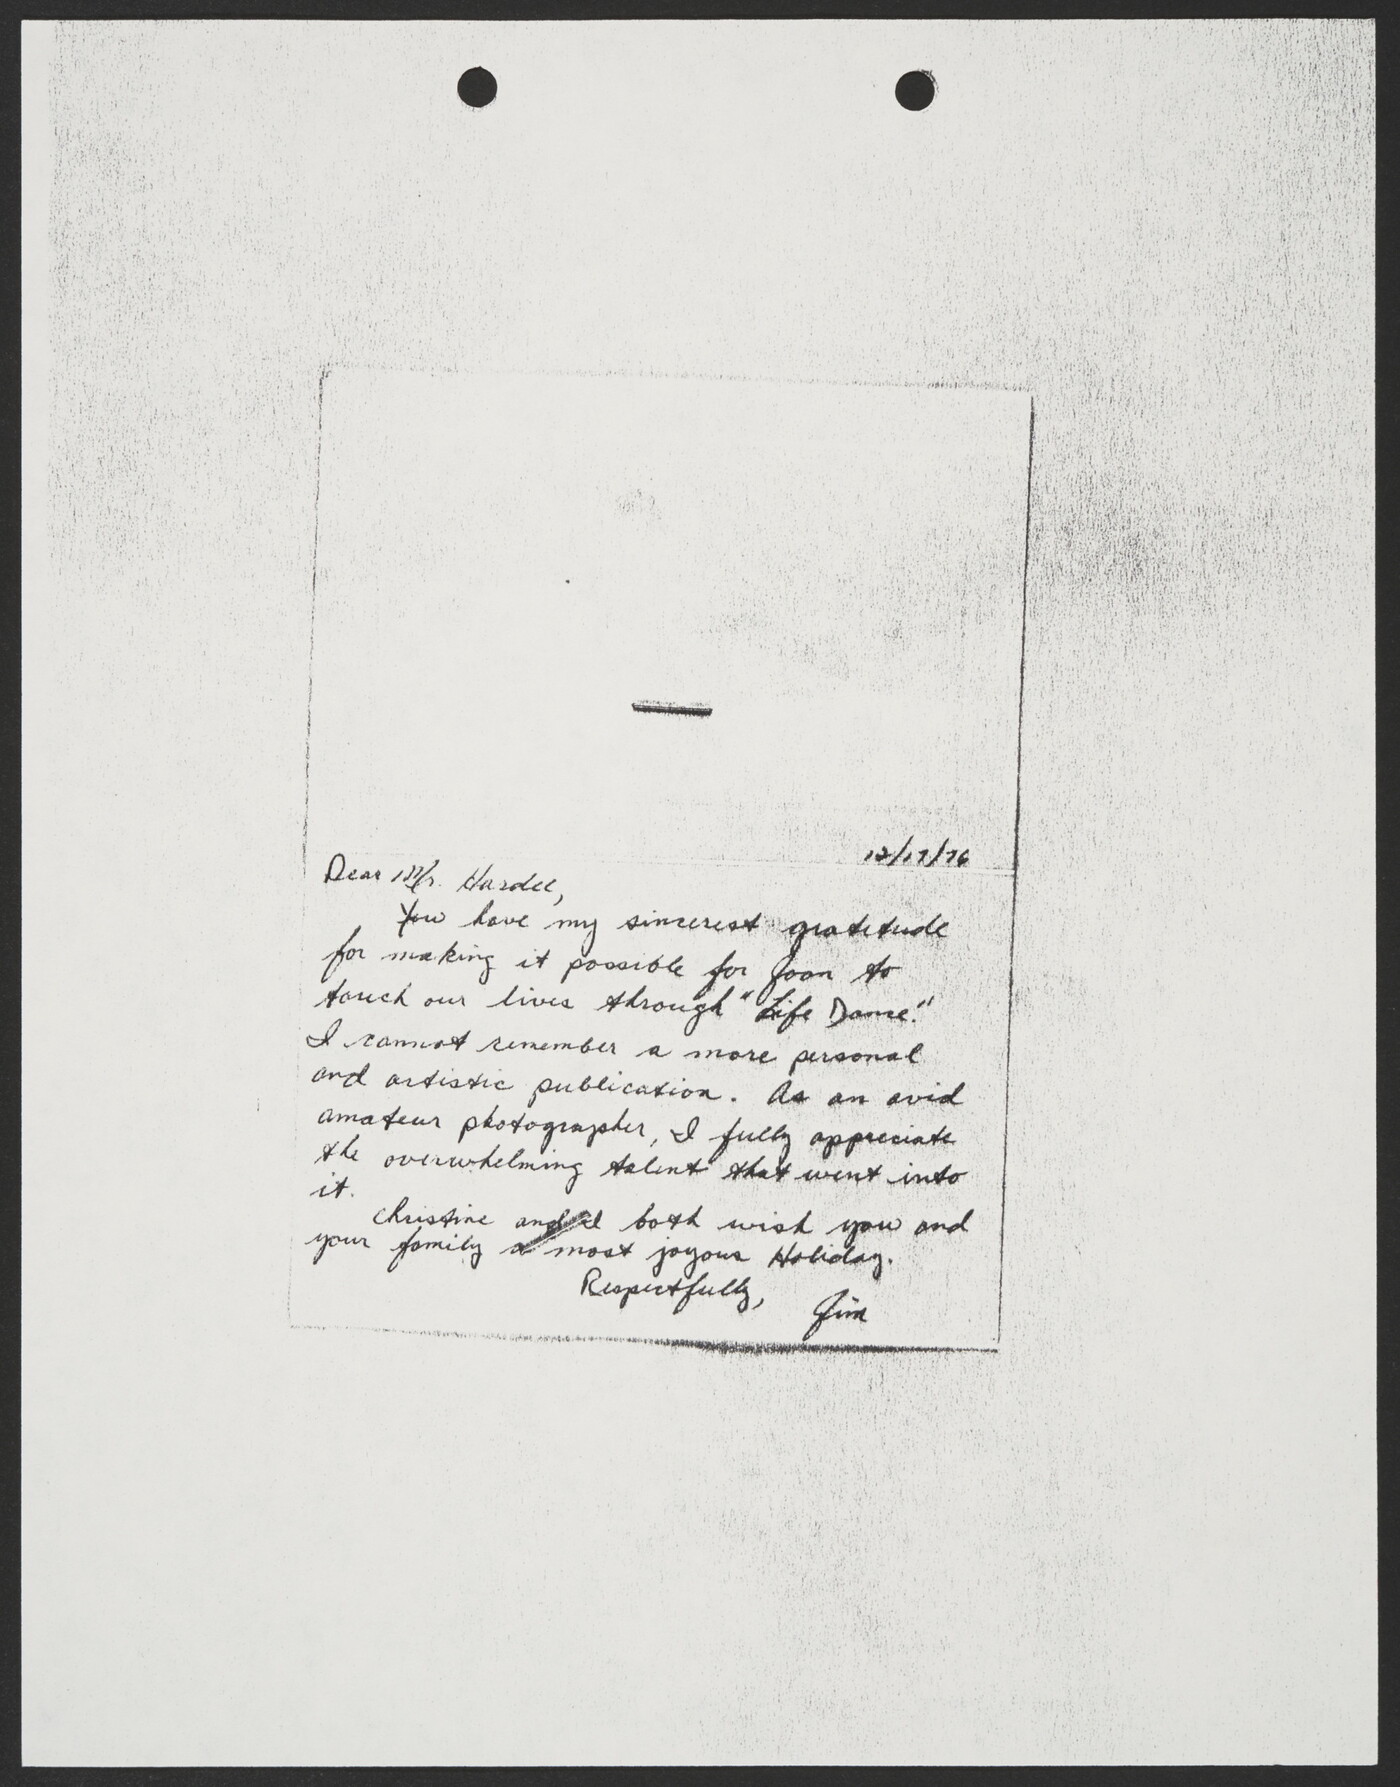 12/17/76
Dear Mr. Hardee,
You have my sincerest gratitude
for making it possible for Joan to
touch our lives through "Life Dance."
I cannot remember a more personal
and artistic publication. As an avid
amateur photographer, I fully appreciate
the overwhelming talent that went into
it.
Christine and I both wish you and
your family a most joyous Holiday.
Respectfully,
Jim